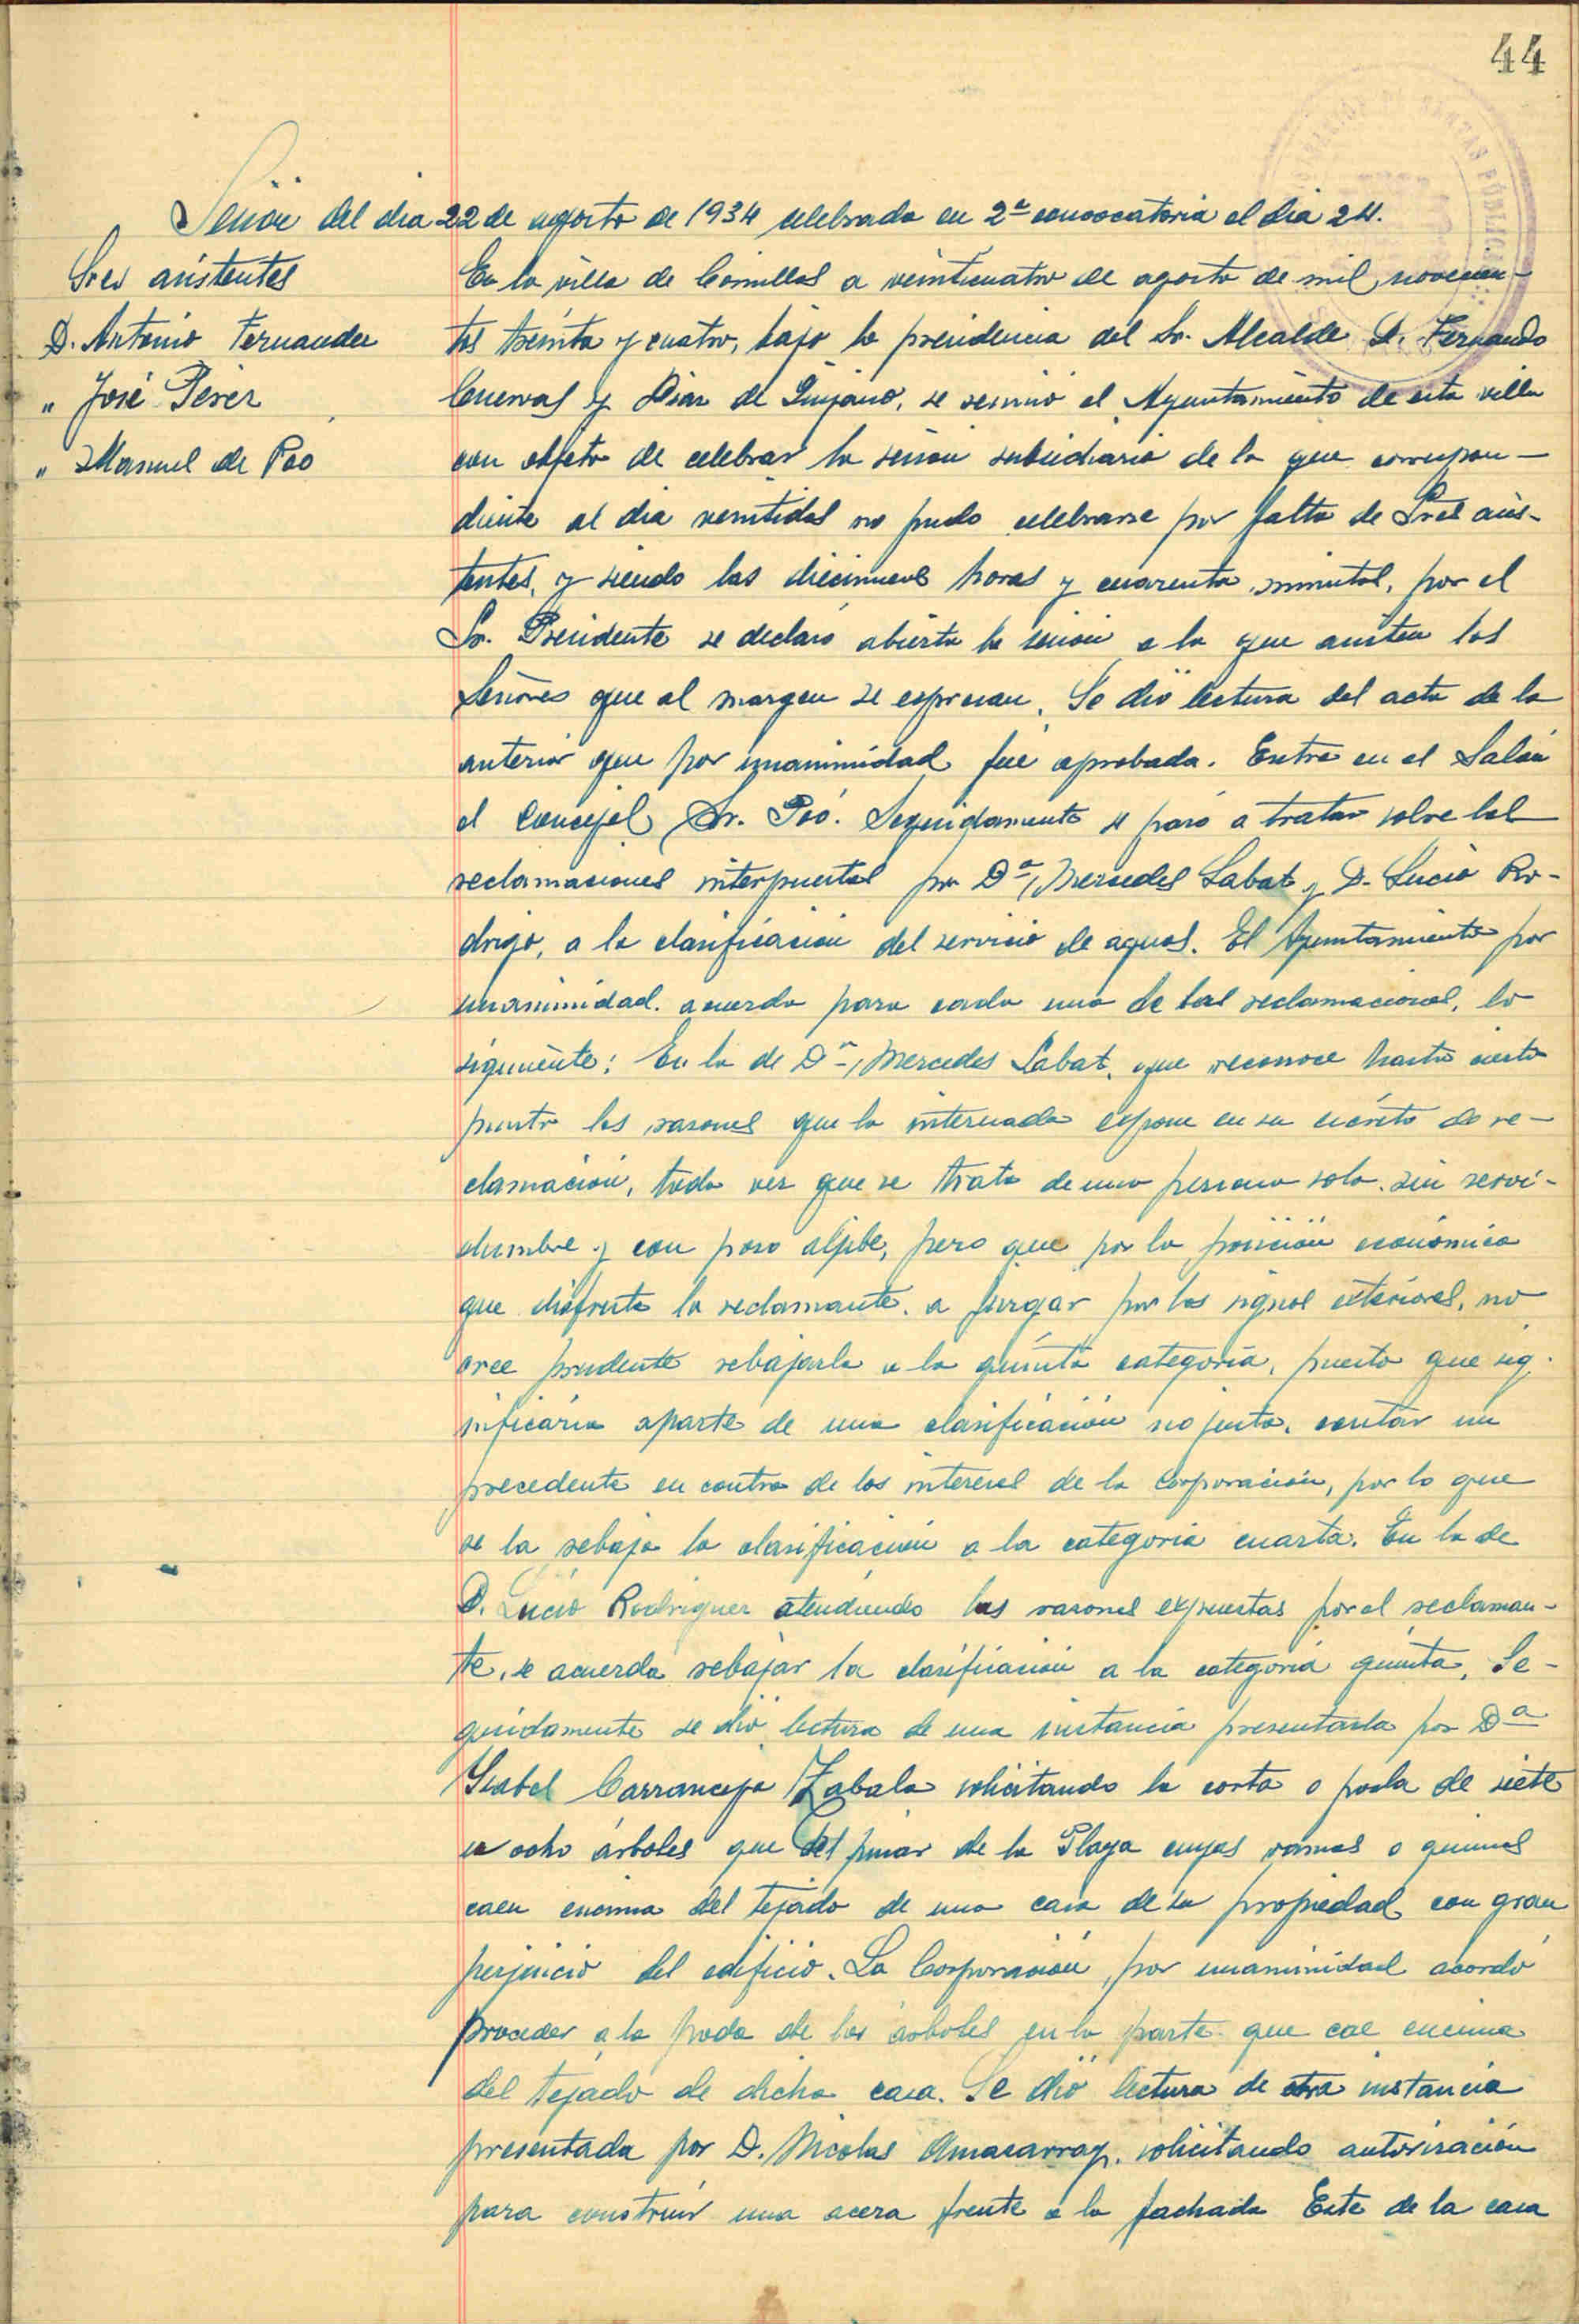 44
Sesión del dia 22 de agosto de 1934 celebrada en 2ª convocatoria el dia 24.
Sres asistentes
D. Antonio Fernandez
" José Pérez
" Manuel de Poo
En la villa de Comillas a veinticuatro de agosto de mil novecien-
tos treinta y cuatro, bajo la presidencia del Sr. Alcalde D. Fernando
Cuevas y Diaz de Quijano, se reunió el Ayuntamiento de esta villa
con objeto de celebrar la sesión subsidiaria de la que correspon-
diente al dia veintidos no pudo celebrarse por falta de Sres asis-
tentes, y siendo las diecinueve horas y cuarenta minutos, por el
Sr. Presidente se declaró abierta la sesión a la que asisten los
Señores que al margen se expresan. Se dió lectura del acta de la
anterior que por unanimidad fué aprobada. Entra en el Salón
el Concejal Sr. Poó. Seguidamente se pasó a tratar sobre las
reclamaciones interpuestas por Dª Mercedes Labat y D. Lucio Ro-
drigo, a la clasificación del servicio de aguas. El Ayuntamiento por
unanimidad. acuerda para cada una de las reclamaciones, lo
siguiente: En la de Dª Mercedes Labat, que reconoce hasta cierto
punto las razones que la interesada expone en su escrito de re-
clamación, toda vez que se trata de una persona sola. sin servi-
dumbre y con pozo aljibe, pero que por la posición económica
que disfruta la reclamante. a juzgar por los signos exteriores, no
cree prudente rebajarla a la quinta categoría, puesto que sig-
nificaria aparte de una clasificación no justa, sentar un
precedente en contra de los intereses de la Corporación, por lo que
se la rebaja la clasificación a la categoria cuarta. En la de
D. Lucio Rodriguez atendiendo las razones expuestas por el reclaman-
te, se acuerda rebajar la clasificación a la categoria quinta. Se-
guidamente se dió lectura de una instancia presentada por Dª
Isabel Carranceja Zabala solicitando la corta o poda de siete
u ocho árboles que del pinar de la Playa cuyas ramas o quimas
caen encima del tejado de una casa de su propiedad con gran
perjuicio del edificio. La Corporación, por unanimidad acordó
proceder a la poda de los árboles en la parte que cae encima
del tejado de dicha casa. Se dió lectura de otra instancia
presentada por D. Nicolas Amasarray, solicitando autorización
para construir una acera frente a la fachada Este de la casa